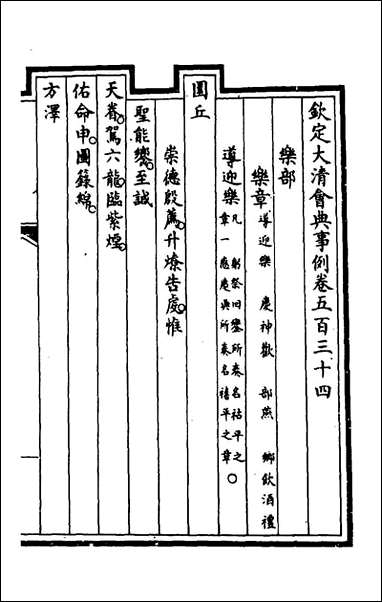 欽定大清會典事例卷五百三十四
樂部
樂章 導迎樂 慶神歡 部燕 鄉飲酒禮
導迎樂 凡 躬祭旧鑾所奏名祜平之
章一應慶典所奏名禧平之章○
圜丘
崇德殷薦升燎告虔惟
聖能饗至誠
天眷駕六龍臨紫煙
佑命申圖籙綿
方澤